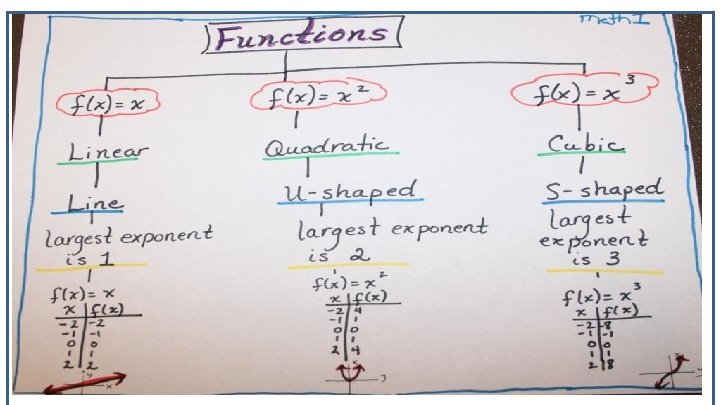 Math I
Functions
f(x) = x
Linear
Line
largest exponent
is 1
f(x) = x
x f(x)
-2 -2
-1 -1
0 0
1 1
2 2
f(x) = x²
Quadratic
U-shaped
largest exponent
is 2
f(x) = x²
x f(x)
-2 4
-1 1
0 0
1 1
2 4
f(x) = x³
Cubic
S-shaped
largest
exponent
is 3
f(x) = x³
x f(x)
-2 -8
-1 -1
0 0
1 1
2 8